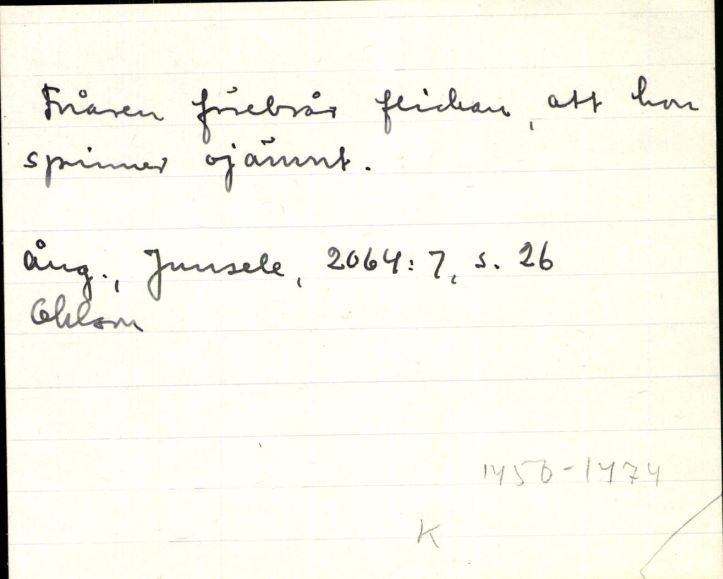 Friaren förebrår flickan, att hon
spinner ojämnt.
Ång., Junsele, 2064:7, s. 26
Ohlson
1450-1474
K